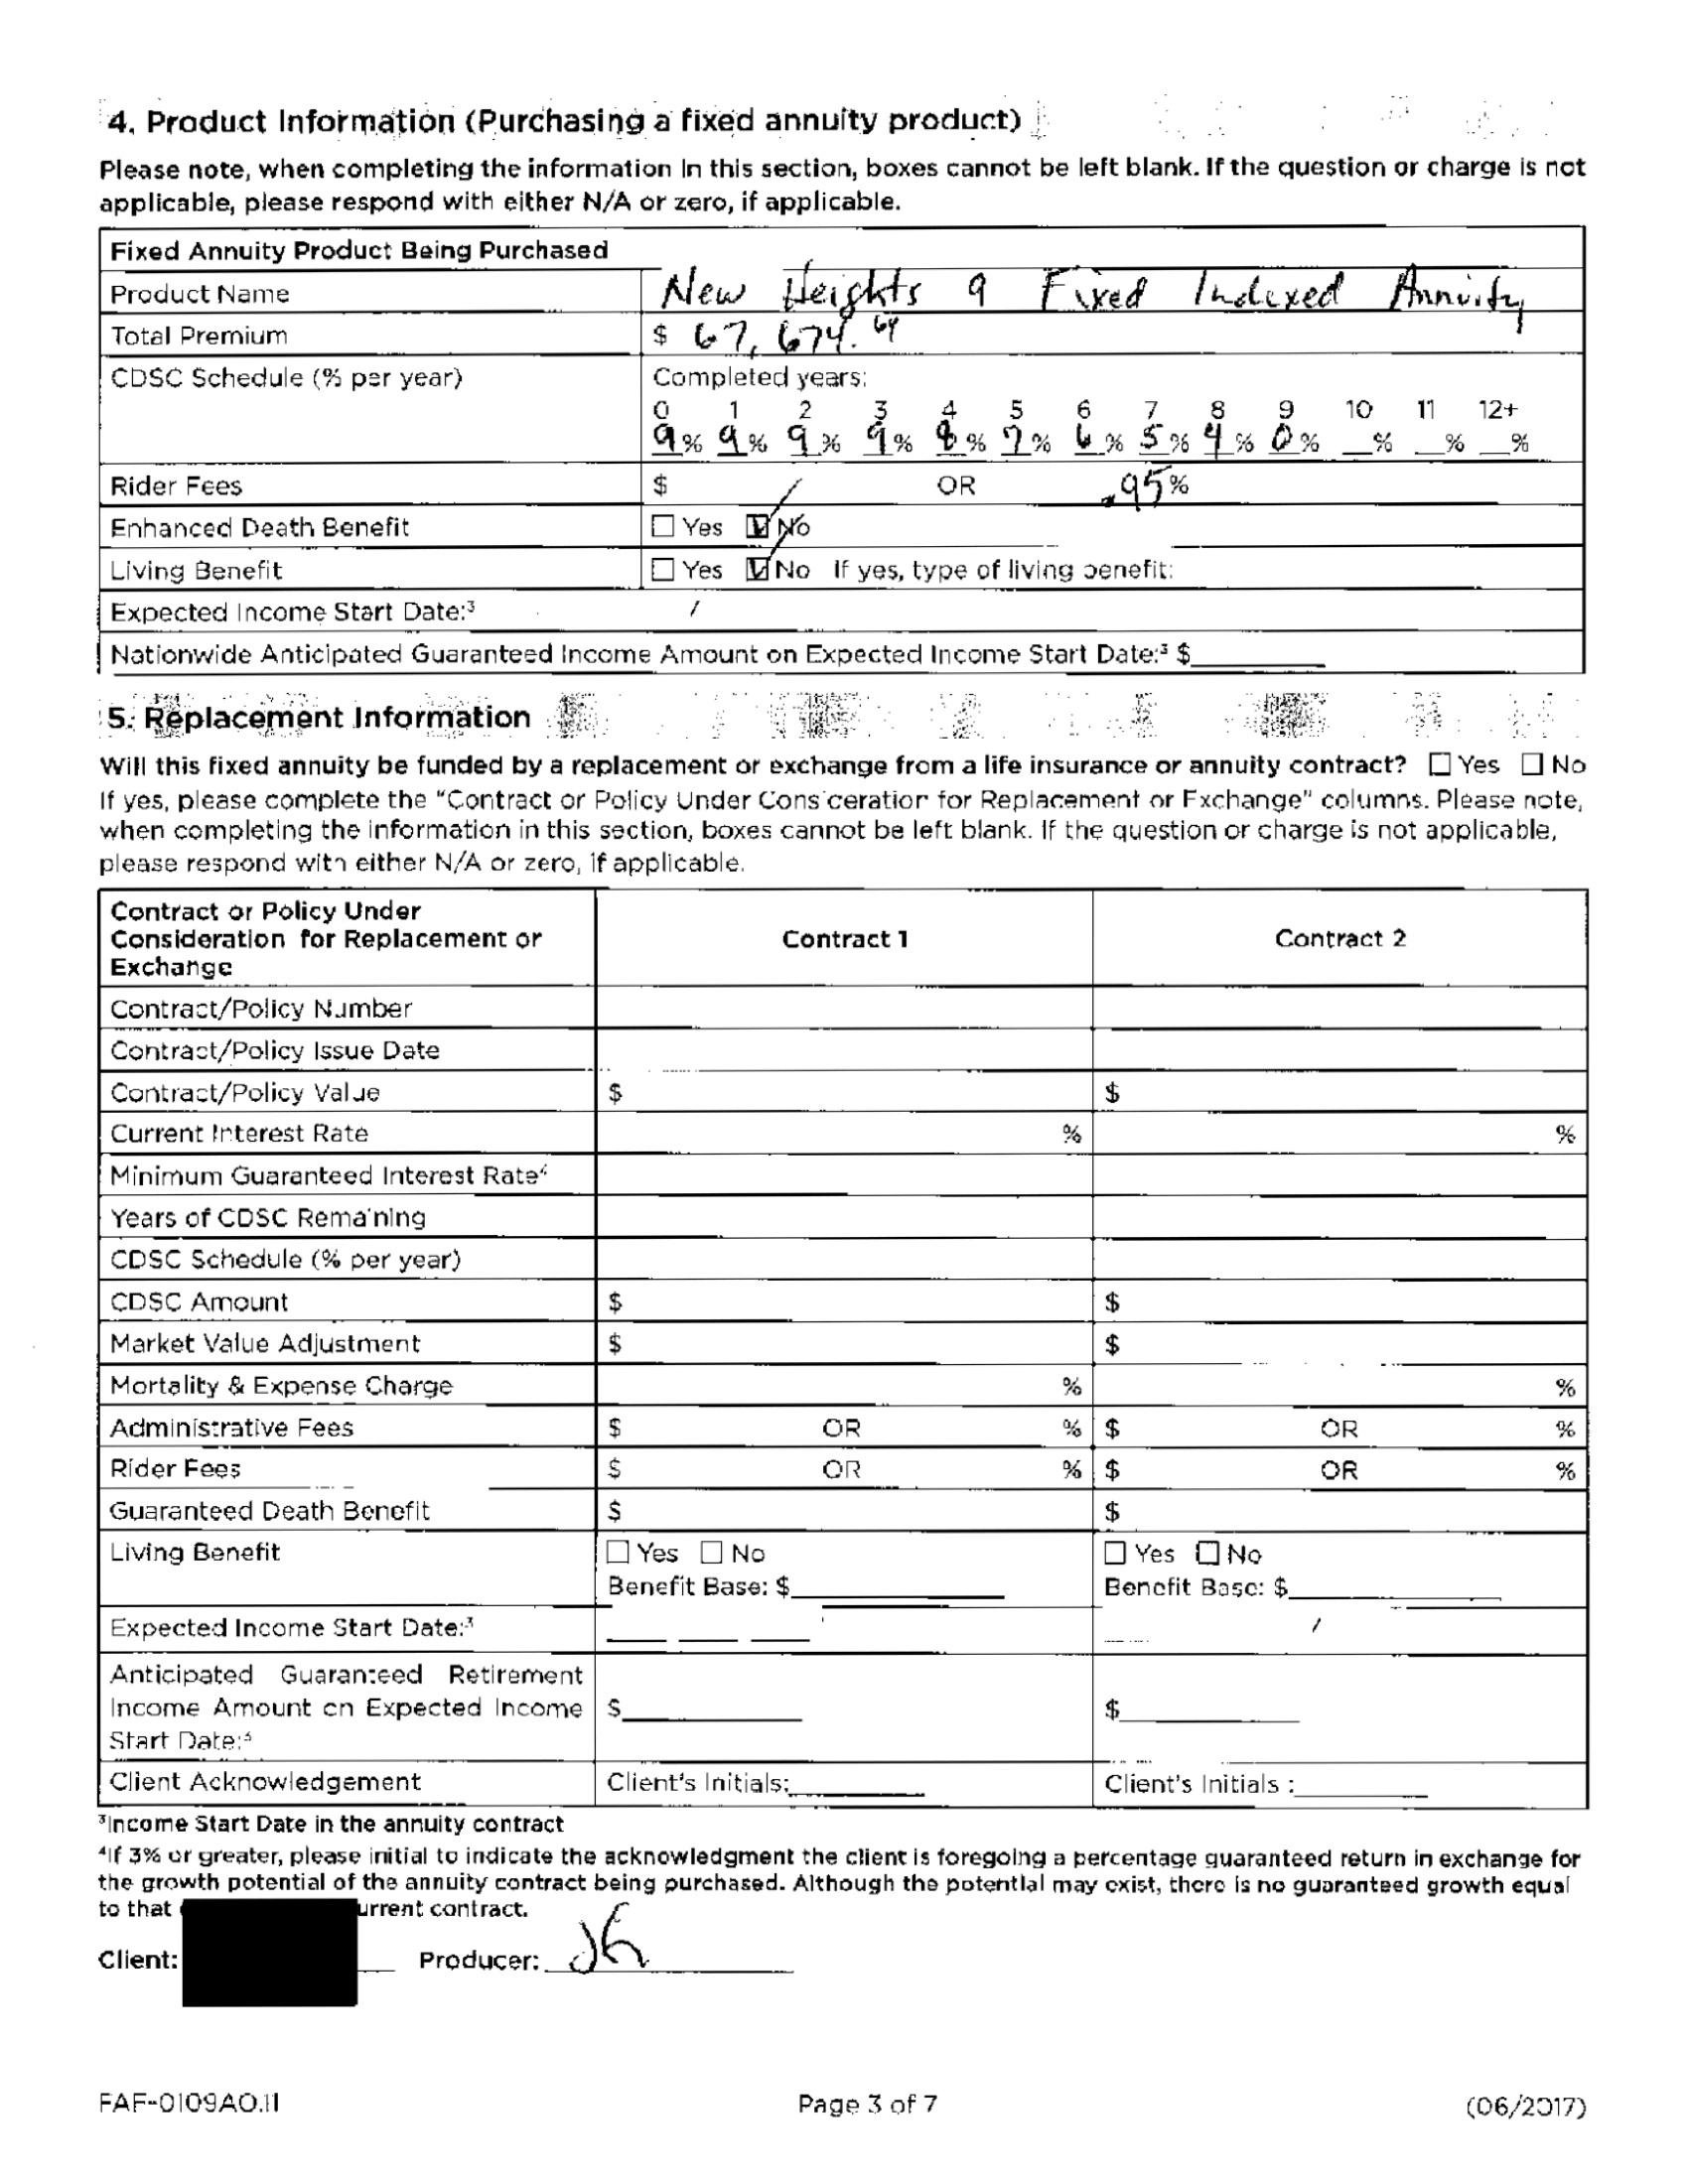 4. Product Information (Purchasing a fixed annuity product)
Please note, when completing the information in this section, boxes cannot be left blank. If the question or charge is not
applicable, please respond with either N/A or zero, if applicable.
Fixed Annuity Product Being Purchased
Product Name New Heights 9 Fixed Indexed Annuity
Total Premium $ 67,674.64
CDSC Schedule (% per year) Completed years:
0 1 2 3 4 5 6 7 8 9 10 11 12+
9% 9% 9% 9% 8% 7% 6% 5% 4% 0% __% __% __%
Rider Fees $ OR .95%
Enhanced Death Benefit ☐ Yes ☑ No
Living Benefit ☐ Yes ☑ No If yes, type of living benefit:
Expected Income Start Date:³ /
Nationwide Anticipated Guaranteed Income Amount on Expected Income Start Date:³ $
5. Replacement Information
Will this fixed annuity be funded by a replacement or exchange from a life insurance or annuity contract? ☐ Yes ☐ No
If yes, please complete the "Contract or Policy Under Consideration for Replacement or Exchange" columns. Please note,
when completing the information in this section, boxes cannot be left blank. If the question or charge is not applicable,
please respond with either N/A or zero, if applicable.
Contract or Policy Under
Consideration for Replacement or
Exchange
Contract 1 Contract 2
Contract/Policy Number
Contract/Policy Issue Date
Contract/Policy Value $ $
Current Interest Rate % %
Minimum Guaranteed Interest Rate⁴
Years of CDSC Remaining
CDSC Schedule (% per year)
CDSC Amount $ $
Market Value Adjustment $ $
Mortality & Expense Charge % %
Administrative Fees $ OR % $ OR %
Rider Fees $ OR % $ OR %
Guaranteed Death Benefit $ $
Living Benefit ☐ Yes ☐ No ☐ Yes ☐ No
Benefit Base: $ Benefit Base: $
Expected Income Start Date:³ /
Anticipated Guaranteed Retirement
Income Amount on Expected Income $ $
Start Date:⁴
Client Acknowledgement Client's Initials: Client's Initials :
³Income Start Date in the annuity contract
⁴If 3% or greater, please initial to indicate the acknowledgment the client is foregoing a percentage guaranteed return in exchange for
the growth potential of the annuity contract being purchased. Although the potential may exist, there is no guaranteed growth equal
to that urrent contract.
Client: Producer: JK
FAF-0109AO.11 Page 3 of 7 (06/2017)